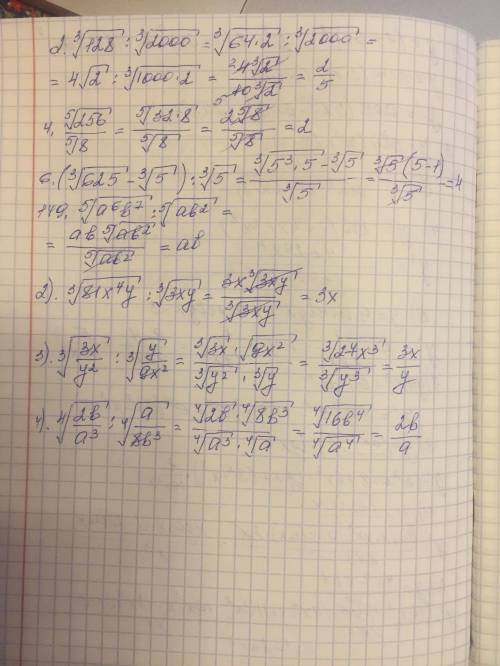 2. ∛128 : ∛2000 = ∛(64·2) : ∛2000 =
= 4√2 : ∛(1000·2) = 4∛2 / 10∛2 = 2/5
4. ⁵√256 / ⁵√8 = ⁵√(32·8) / ⁵√8 = 2⁵√8 / ⁵√8 = 2
6. (∛625 - ∛5) : ∛5 = (∛(5³·5) - ∛5) / ∛5 = ∛5(5-1) / ∛5 = 4
149. ⁵√(a⁶b⁷) : ⁵√(ab²) =
= ab ⁵√(ab²) / ⁵√(ab²) = ab
2). ∛(81x⁴y) : ∛(3xy) = 3x∛(3xy) / ∛(3xy) = 3x
3). ∛(3x/y²) : ∛(y/9x²) = ∛(3x) · √(9x²) / ∛(y²) · ∛y = ∛(27x³) / ∛(y³) = 3x/y
4). ⁴√(2b/a³) : ⁴√(a/8b³) = ⁴√(2b) · ⁴√(8b³) / ⁴√(a³) · ⁴√a = ⁴√(16b⁴) / ⁴√(a⁴) = 2b/a